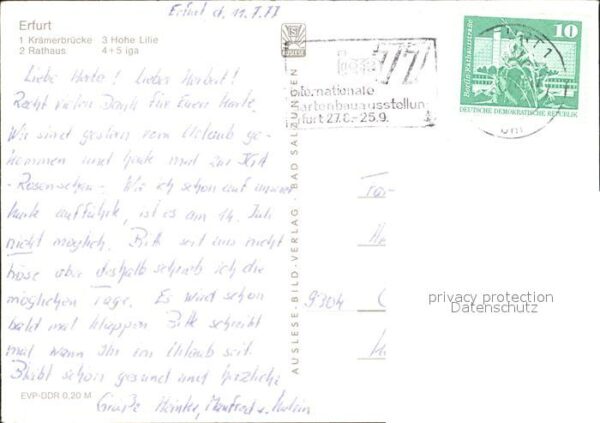 Erfurt, d. 11.7.77
Erfurt
1 Krämerbrücke 3 Hohe Lilie
2 Rathaus 4+5 iga
Liebe Herta! Lieber Herbert!
Recht vielen Dank für Eure Karte.
Wir sind gestern vom Urlaub ge-
kommen und heute mal zur IGA
-Rosenschau-. Wie ich schon auf unserer
Karte aufführte, ist es am 14. Juli
nicht möglich. Bitte seit uns nicht
böse aber deshalb schrieb ich die
möglichen Tage. Es wird schon
bald mal klappen. Bitte schreibt
mal wann Ihr im Urlaub seit.
Bleibt schön gesund und herzliche
Grüße Manfred u.
EVP-DDR 0,20 M
AUSLESE-BILD-VERLAG · BAD SALZUNGEN
77
Internationale
Gartenbauausstellung
Erfurt 27.8.-25.9.
10
Berlin, Rathausstraße
DEUTSCHE DEMOKRATISCHE REPUBLIK
9304
privacy protection
Datenschutz